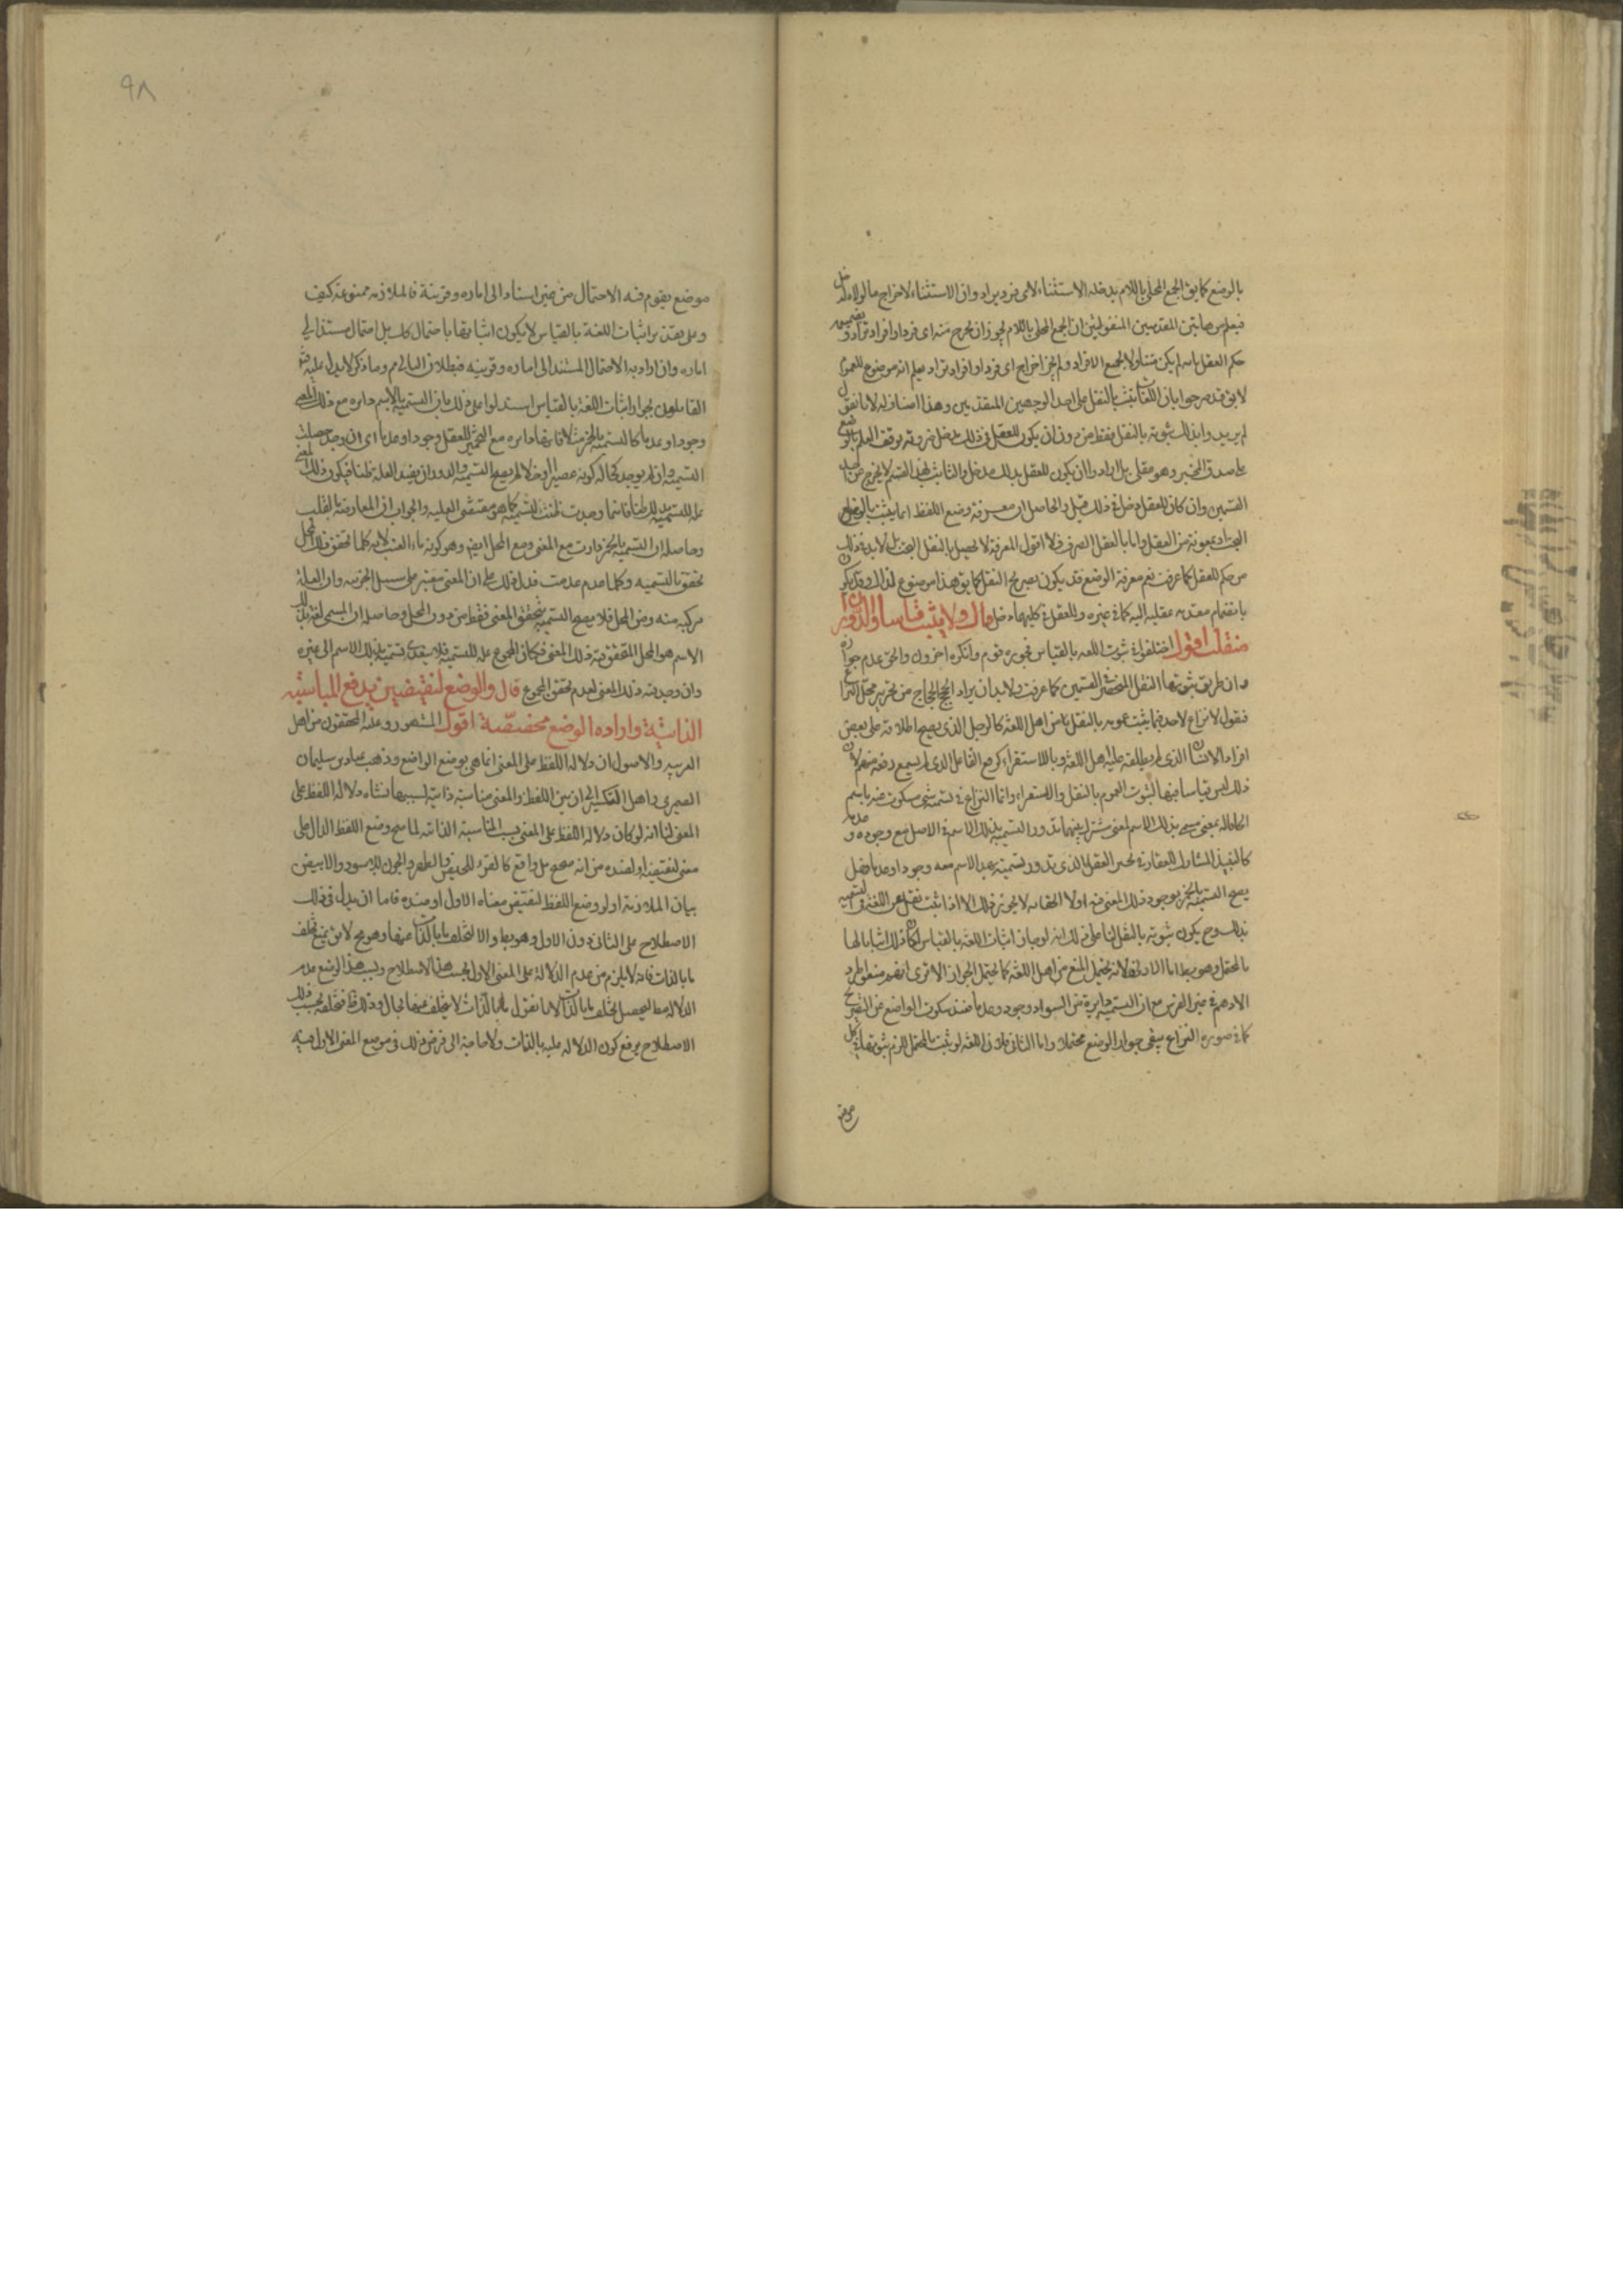 بالوضع كما يق الجمع المحلى باللام يدخله الاستثناء لاى فرد يراد وان الاستثناء لاخراج ما لولاه لدخل
فيعلم من هاتين المقدمتين المنقولتين ان الجمع المحلى باللام يجوز ان يخرج منه اى فرد او افراد تراد و بضميمه
حكم العقل بانه لو لم يكن متناولا لجميع الافراد ولم يجز اخراج اى فرد او افراد تراد يعلم انه موضوع للعموم
لا يق قد صرحوا بان اللغة تثبت بالنقل على احد الوجهين المتقدمين وهذا اضاف له لانا نقول
لم يريدوا بذلك ثبوته بالنقل فقط من دون ان يكون للعقل فى ذلك مدخل ضرورة توقف العلم بالوضع
على صدق المخبر وهو عقلى بل ارادوا ان يكون للعقل بذلك مدخل والثابت بهذا القسم لا يخرج عن احد
القسمين وان كان للعقل مدخل فى ذلك قيل والحاصل ان معرفة وضع اللفظ انما يثبت بالنقل
البحت او بمعونة من العقل واما بالعقل الصرف فلا اقول المعرفة لا تحصل بالنقل البحت بل لا بد فى ذلك
من حكم للعقل كما عرفت نعم معرفة الوضع قد يكون بصريح النقل كما يق هذا موضوع لذاك وقد يكون
بانضمام مقدمه عقليه اليه كما فى غيره وللعقل فى كليهما مدخل قال ولا يثبت قياسا والدوران
منقلب اقول اختلفوا فى ثبوت اللغه بالقياس فجوزه قوم وانكره اخرون والحق عدم جوازه
وان طريق ثبوتها النقل المنحصر فى القسمين كما عرفت ولا بد ان يراد الحجج من تحرير محل النزاع
فنقول لا نزاع لاحد فيما يثبت عمومه بالنقل من اهل اللغة كالرجل الذى يصح اطلاقه على بعض
افراد الانسان الذى لم يطلقه عليه اهل اللغة وبالاستقراء كرفع الفاعل الذى لم يسمع رفعه منهم لان
ذلك ليس قياسا فيها لثبوت العموم بالنقل والاستقراء وانما النزاع فى تسمية شئ مسكوت عنه باسم
الحاقا له بمعنى سمى بذلك الاسم لمعنى مشترك بينهما تدور التسمية بذلك الاسم فى الاصل مع وجوده وعدمه
كالنبيذ المشارك للعقار فى تخمير العقل الذى تدور تسميته بهذا الاسم معه وجودا وعدما فهل
يصح التسمية بالخمر بوجود ذلك المعنى فيه اولا الحق انه لا يجوز ذلك الا اذا ثبت نقل من اللغة فى تسميه
بذلك وح يكون ثبوته بالنقل لنا على ذلك انه لو جاز اثبات اللغة بالقياس لكان ذلك اثباتا لها
بالمحتمل وهو بط اما الاول فلانه يحتمل المنع من اهل اللغة كما يحتمل الجواز الا ترى انهم منعوا طرد
الادهم فى غير الفرس مع ان التسمية دايرة مع السواد وجودا وعدما فعند سكوت الواضع عن التصريح
كما فى صوره النزاع يبقى جواز الوضع محتملا واما الثانى فلان اللغه لو ثبت بالمحتمل للزم ثبوتها فى كل
موضع
٩٨
موضع يقوم فيه الاحتمال من غير استناد الى اماره وقرينة فالملازمه ممنوعة كيف
وعلى تقدير اثبات اللغة بالقياس لا يكون اثباتها باحتمال كك بل احتمال مستند الى
اماره وان اراد به الاحتمال المستند الى اماره وقرينه فبطلان التالى مم وما ذكر لا يدل عليه ثم
القائلون بجواز اثبات اللغة بالقياس استدلوا على ذلك بان التسمية بالاسم دايره مع ذلك المعنى
وجودا وعدما كالتسميه بالخمر مثلا فانها دايره مع التخمير للعقل وجودا وعدما اى ان وجد حصلت
التسمية وان لم يوجد كحالة كونه عصيرا او خلا لم يصح التسمية والدوران يفيد العلية ظنا فيكون ذلك المعنى
عله للتسميه بذلك ظنا فاينما وجدت ظنت التسميه كما هو مقتضى العليه والجواب ان المعارضة بالقلب
وحاصله ان التسمية بالخمر دارت مع المعنى ومع المحل ايضا وهو كونه ماء العنب لانه كلما تحقق ذلك المحل
تحققت التسميه وكلما عدم عدمت فدل ذلك على ان المعنى معتبر على سبيل الجزئيه وان العلة
مركبه منه ومن المحل فلا يصح التسمية بتحقق المعنى فقط من دون المحل وحاصله ان المسمى لغة بذلك
الاسم هو المحل المتحقق فيه ذلك المعنى فكان المجموع عله للتسميه فلا يتعدى تسميته بذلك الاسم الى غيره
وان وجد فيه ذلك المعنى لعدم تحقق المجموع قال والوضع لنقيضين يدفع المناسبة
الذاتية وارادة الوضع مخصصة اقول المشهور وعليه المحققون من اهل
العربيه والاصول ان دلاله اللفظ على المعنى انما هى بوضع الواضع وذهب عباد بن سليمان
الصيمرى واهل التكسير الى ان بين اللفظ والمعنى مناسبة ذاتية بسببها نشاء دلاله اللفظ على
المعنى لنا انه لو كان دلاله اللفظ على المعنى بسبب المناسبة الذاتيه لما صح وضع اللفظ الدال على
معنى لنقيضه او لضده من انه صحيح بل واقع كالقرء للحيض والطهر والجون للاسود والابيض
بيان الملازمة انه لو وضع اللفظ لنقيض معناه الاول او ضده فاما ان يدل فى ذلك
الاصطلاح على الثانى دون الاول وهو بط والا لتخلف ما بالذات عنها وهو مح لا متنع تخلف
ما بالذات فانه لا يلزم من عدم الدلالة على المعنى الاول بحسب هذا الاصطلاح وبسبب هذا الوضع عدم
الدلاله مطلقا ليحصل تخلف ما بالذات لانا نقول ما بالذات لا يتخلف عنها بحال وذلك ظ فتخلفه بحسب ذلك
الاصطلاح يرفع كون الدلاله عليه بالذات ولا حاجة الى فرض ذلك فى موضع المعنى الاول فيه